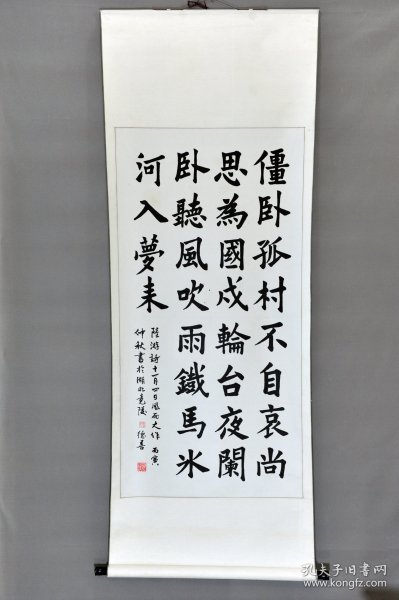 僵卧孤村不自哀尚
思為國戍輪台夜闌
卧聽風吹雨鐵馬氷
河入夢来
陸游詩十一月四日風雨大作 丙寅
仲秋書於湖北竟陵
孔夫子旧书网
www.kongfz.com